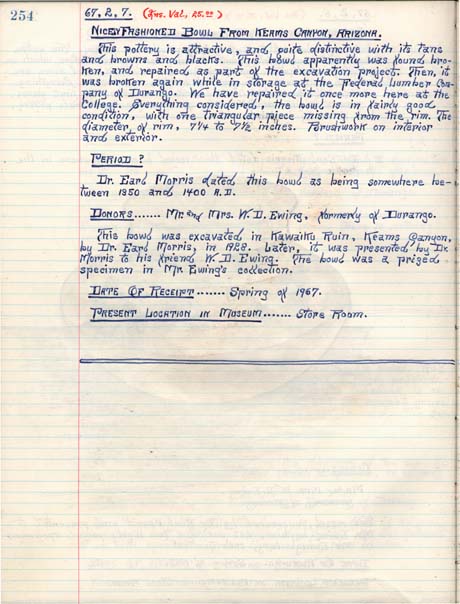 254
67.2.7. (Ins. Val., 25.00)
NICELY FASHIONED BOWL FROM KEAMS CANYON, ARIZONA.
This pottery is attractive, and quite distinctive with its tans
and browns and blacks. This bowl apparently was found bro-
ken, and repaired as part of the excavation project. Then, it
was broken again while in storage at the Federal Lumber Com-
pany of Durango. We have repaired it once more here at the
College. Everything considered, the bowl is in fairly good
condition, with one triangular piece missing from the rim. The
diameter, of rim, 7¼ to 7½ inches. Brushwork on interior
and exterior.
PERIOD ?
Dr. Earl Morris dated this bowl as being somewhere be-
tween 1350 and 1400 A.D.
DONORS....... Mr. and Mrs. W. D. Ewing, formerly of Durango.
This bowl was excavated in Kawaiku Ruin, Keams Canyon,
by Dr. Earl Morris, in 1928. Later, it was presented by Dr.
Morris to his friend W. D. Ewing. The bowl was a prized
specimen in Mr. Ewing's collection.
DATE OF RECEIPT....... Spring of 1967.
PRESENT LOCATION IN MUSEUM....... Store Room.